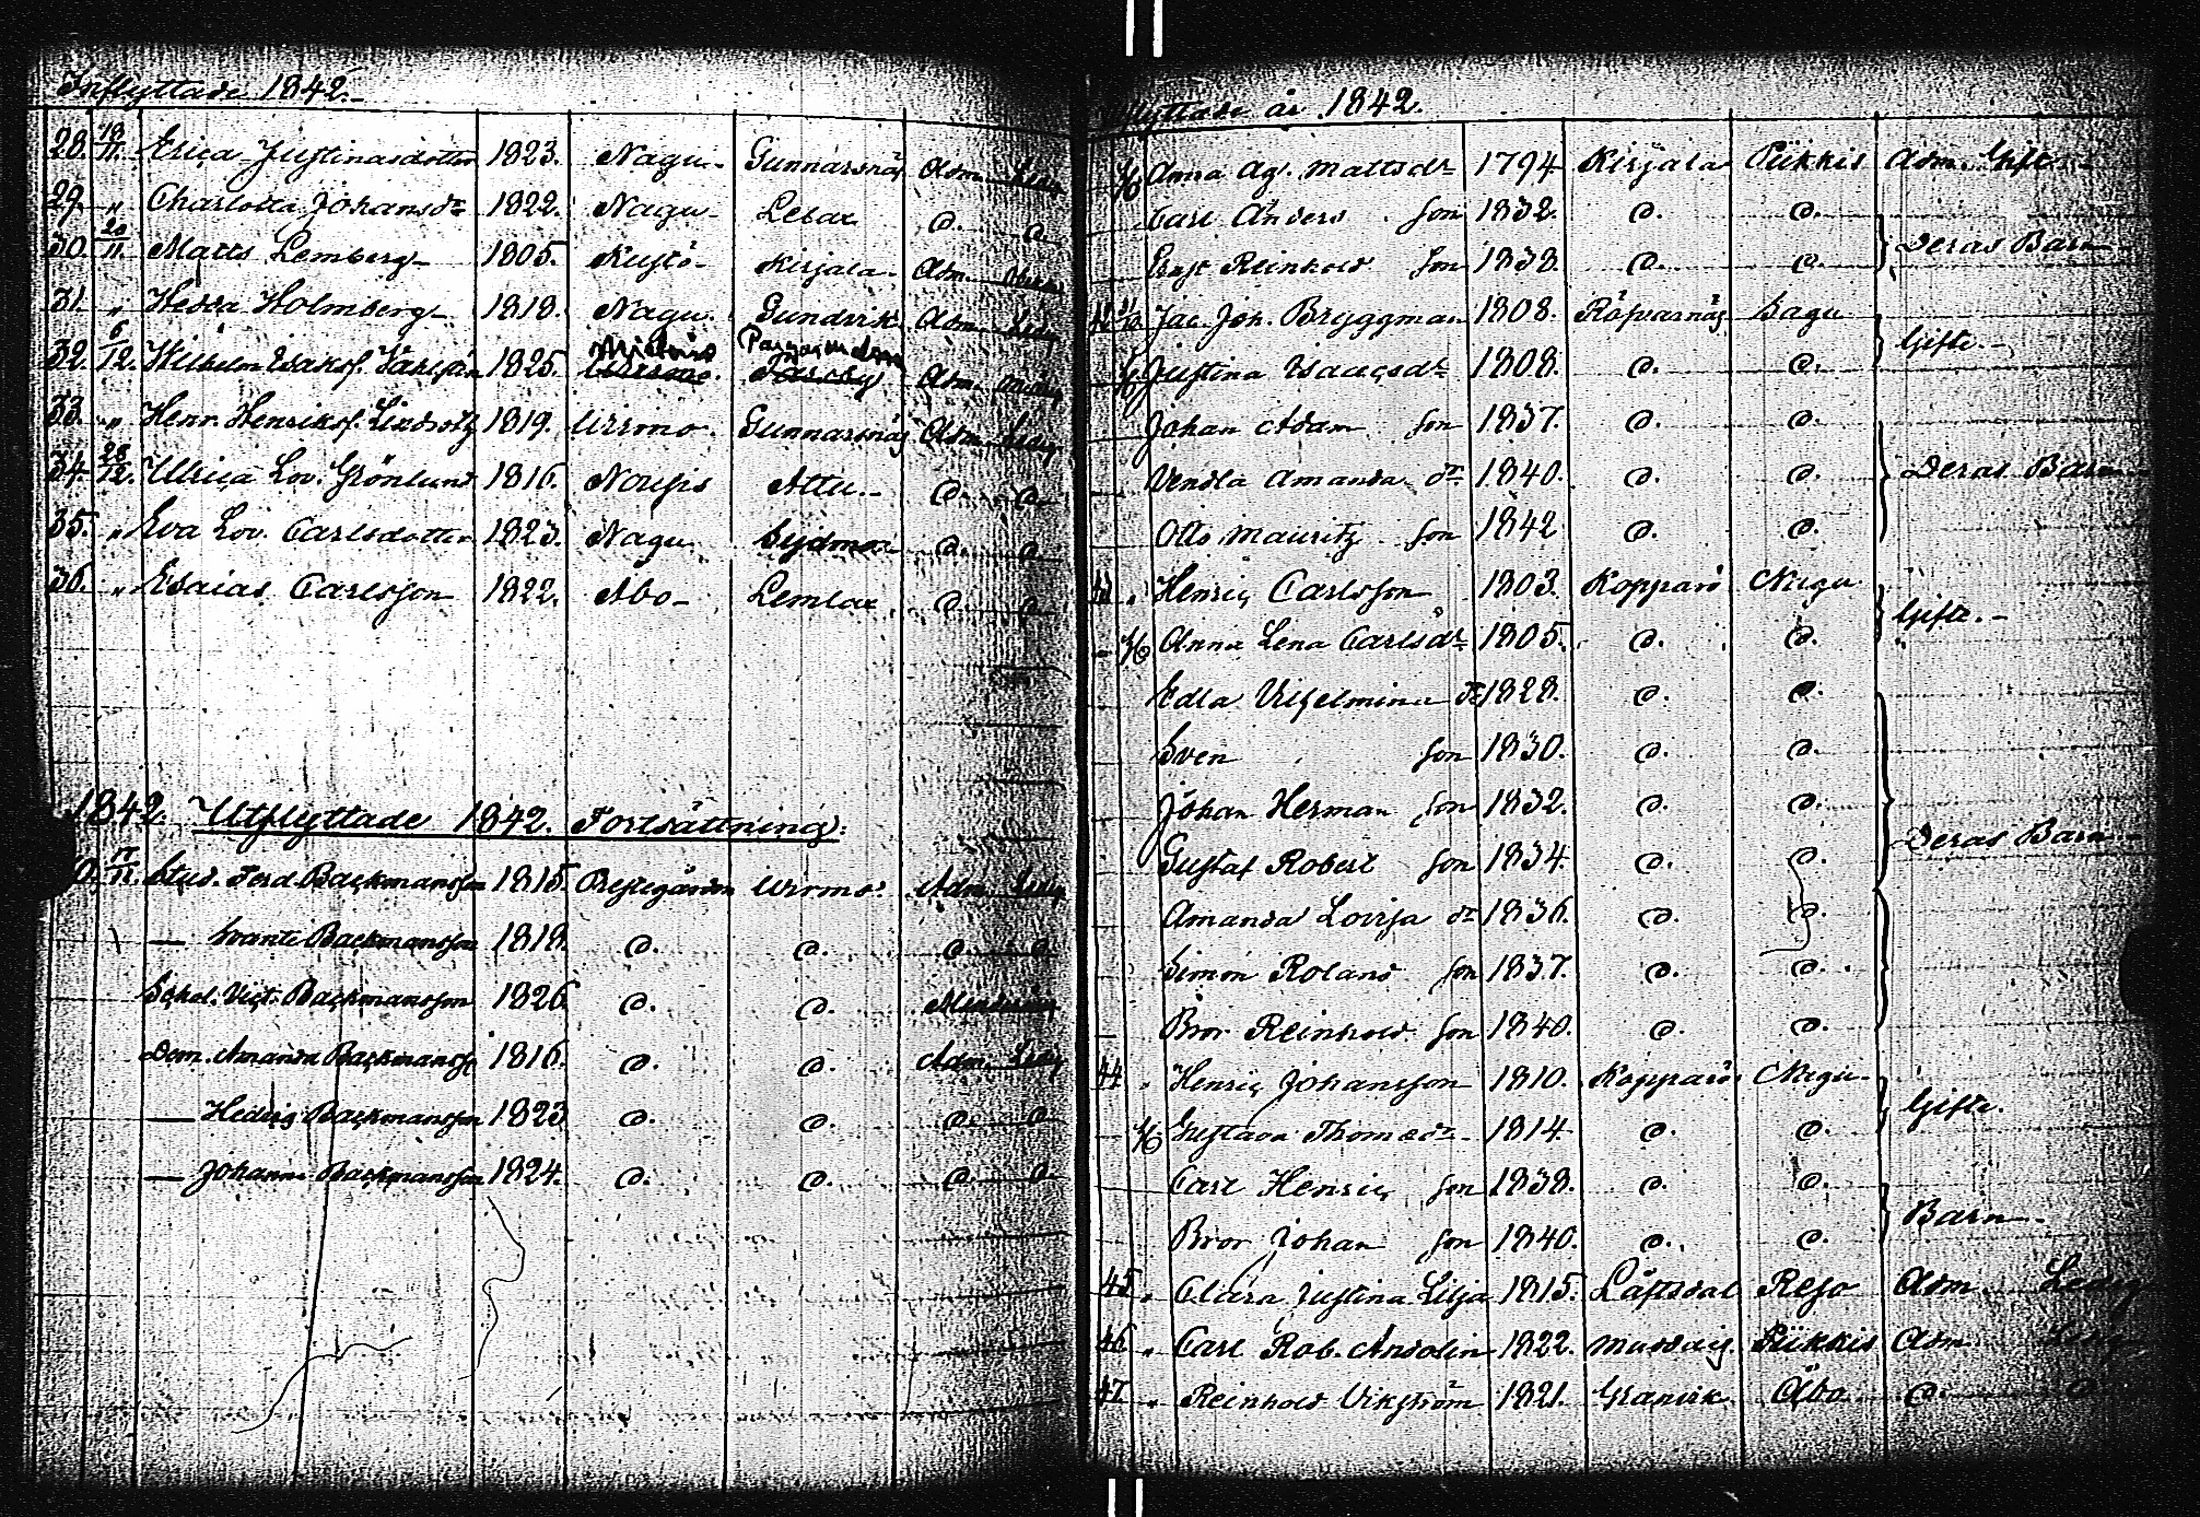 Inflyttade 1842.
28. 18/11. Erica Justinasdotter 1823. Nagu Gunnarsnäs Adm. Ledig
29. " Charlotta Johansdr 1822. Nagu Lebax d. d.
30. 20/11. Matts Lemberg 1805. Kustö Kirjala Adm.
31. " Hedda Holmberg 1818. Nagu. Gundvik Adm. Ledig
32. 6/12. Wilhelm Isaksf. 1825. Adm.
33. " Henr. Henriksf. 1819. Urvmo. Gunnarsnäs Adm. Ledig
34. 28/12. Ulrica Lov. Grönlund 1816. Attu. d. d.
35. " Eva Lov. Carlsdotter 1823. Nagu d. d.
36. " Esaias Carlsson 1822. Abo Lemlax d. d.
1842. Utflyttade 1842. Fortsättning:
11. Stud. Ferd. Backmansson 1815. Prestgården Urvmo. Adm. Ledig
— Svante Backmansson 1818. d. d. d. d.
Schol. Vict. Backmansson 1826. d. d.
Dem. Amanda Backmansson 1816. d. d. Adm. Ledig
— Hedvig Backmansson 1823 d. d. d. d.
— Johanna Backmansson 1824. d. d. d. d.
flyttade år 1842.
H Anna Ag. Mattsdr 1794 Kirjala Piikkis Adm. Gift
Carl Anders son 1832. d. d.
Deras Barn
Ernst Reinhold son 1838. d. d.
Jac. Joh. Bryggman 1808. Röfvarnäs Sagu
Gifte.
H Justina Isacsdr 1808. d. d.
Johan Adam son 1837. d. d.
Vendla Amanda dr 1840. d. d. Deras Barn
Otto Mauritz son 1842 d. d.
43 " Henric Carlsson 1803. Kopparö Nagu
Gifte.
H Anna Lena Carlsdr 1805. d. d.
Edla Vilhelmina dr 1828. d. d.
Sven son 1830. d. d.
Johan Herman son 1832. d. d.
Deras Barn
Gustaf Robert son 1834. d. d.
Amanda Lovisa dr 1836. d. d.
Simon Roland son 1837. d. d.
Bror Reinhold son 1840. d. d.
44 " Henric Johansson 1810. Kopparö Nagu
Gifte.
H Gustava Thomasdr 1814. d. d.
Carl Henric son 1838. d. d.
Barn
Bror Johan son 1840. d. d.
45 " Clara Justina Lilja 1815. Löftsdal Reso Adm. Ledig
46 " Carl Rob. Andolin 1822. Muddais Piikkis Adm. Ledig
47 " Reinhold Vikström 1821. Granvik Åbo d. d.